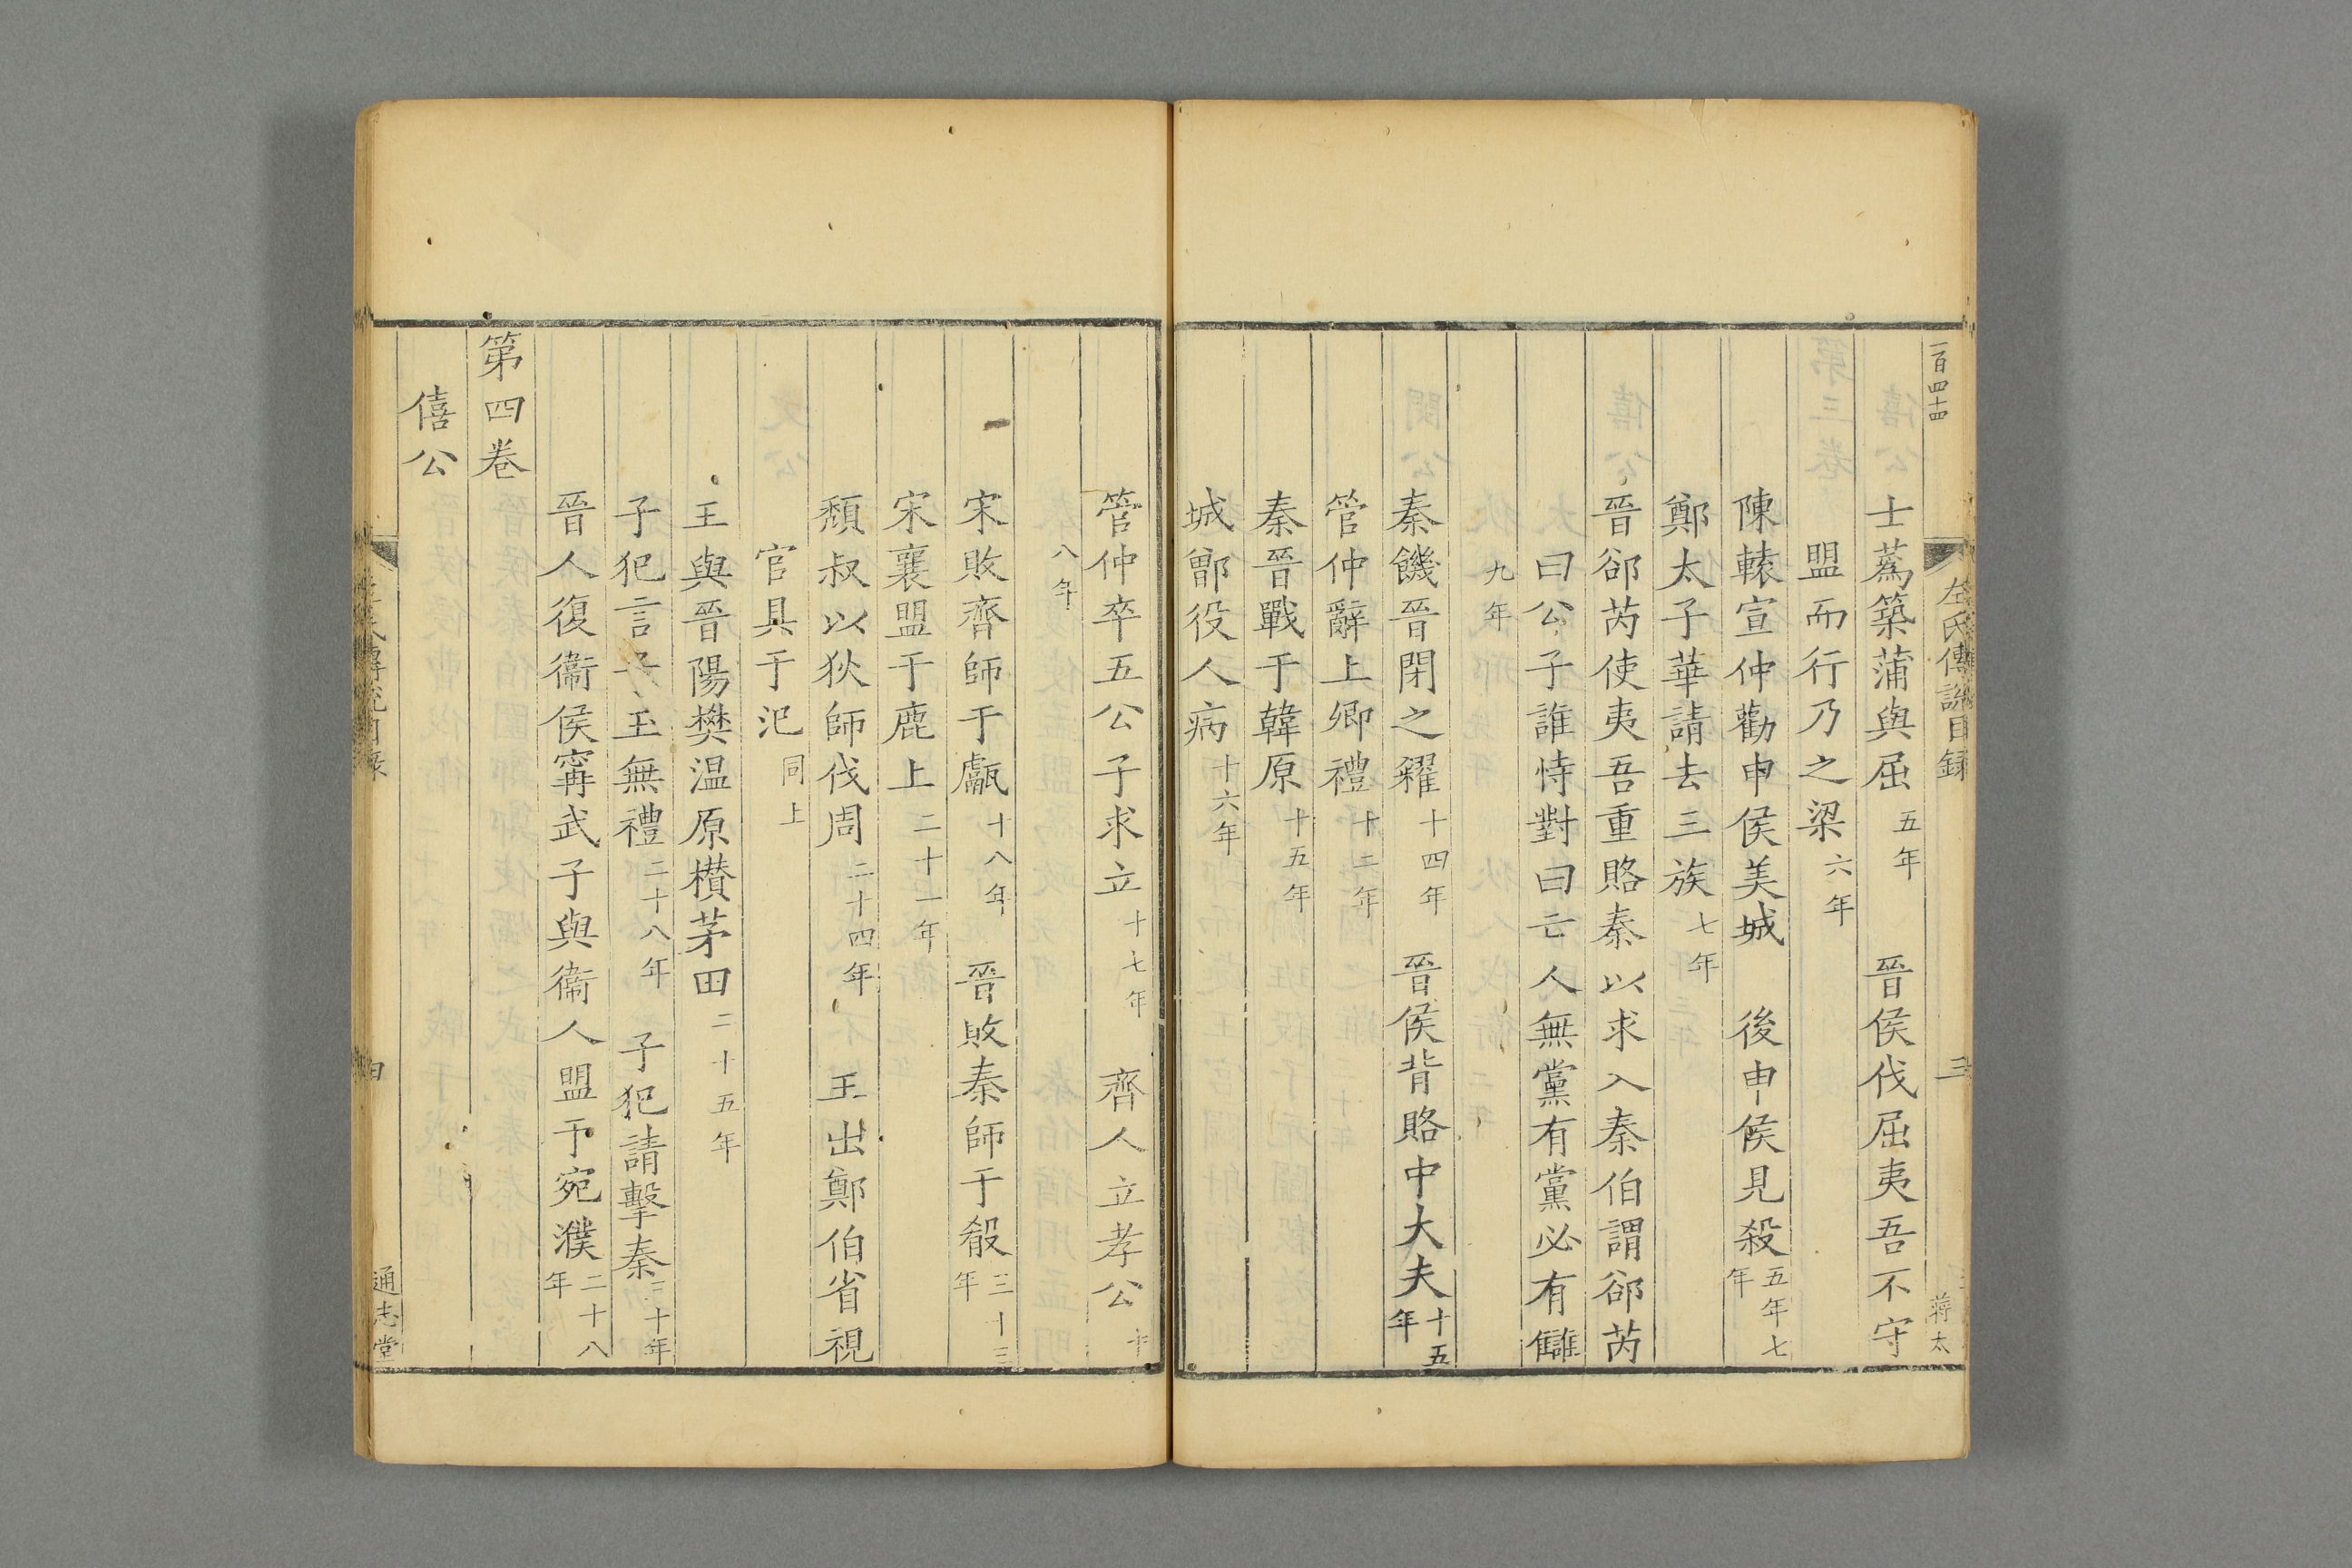 一百四十四
左氏傳說目録
三
蒋太
士蒍築蒲與屈五年 晉侯伐屈夷吾不守
盟而行乃之梁六年
陳轅宣仲勸申侯美城 後申侯見殺五年七年
鄭太子華請去三族七年
晉郤芮使夷吾重賂秦以求入秦伯謂郤芮
曰公子誰恃對曰亡人無黨有黨必有讎
九年
秦饑晉閉之糴十四年 晉侯背賂中大夫十五年
管仲辭上卿禮十二年
秦晉戰于韓原十五年
城鄫役人病十六年
管仲卒五公子求立十七年 齊人立孝公十
八年
宋敗齊師于甗十八年 晉敗秦師于殽三十三年
宋襄盟于鹿上二十一年
頹叔以狄師伐周二十四年 王出鄭伯省視
官具于氾同上
王與晉陽樊温原欑茅田二十五年
子犯言子玉無禮二十八年 子犯請擊秦三十年
晉人復衞侯甯武子與衞人盟于宛濮二十八年
第四卷
僖公
左氏傳說目録
四
通志堂